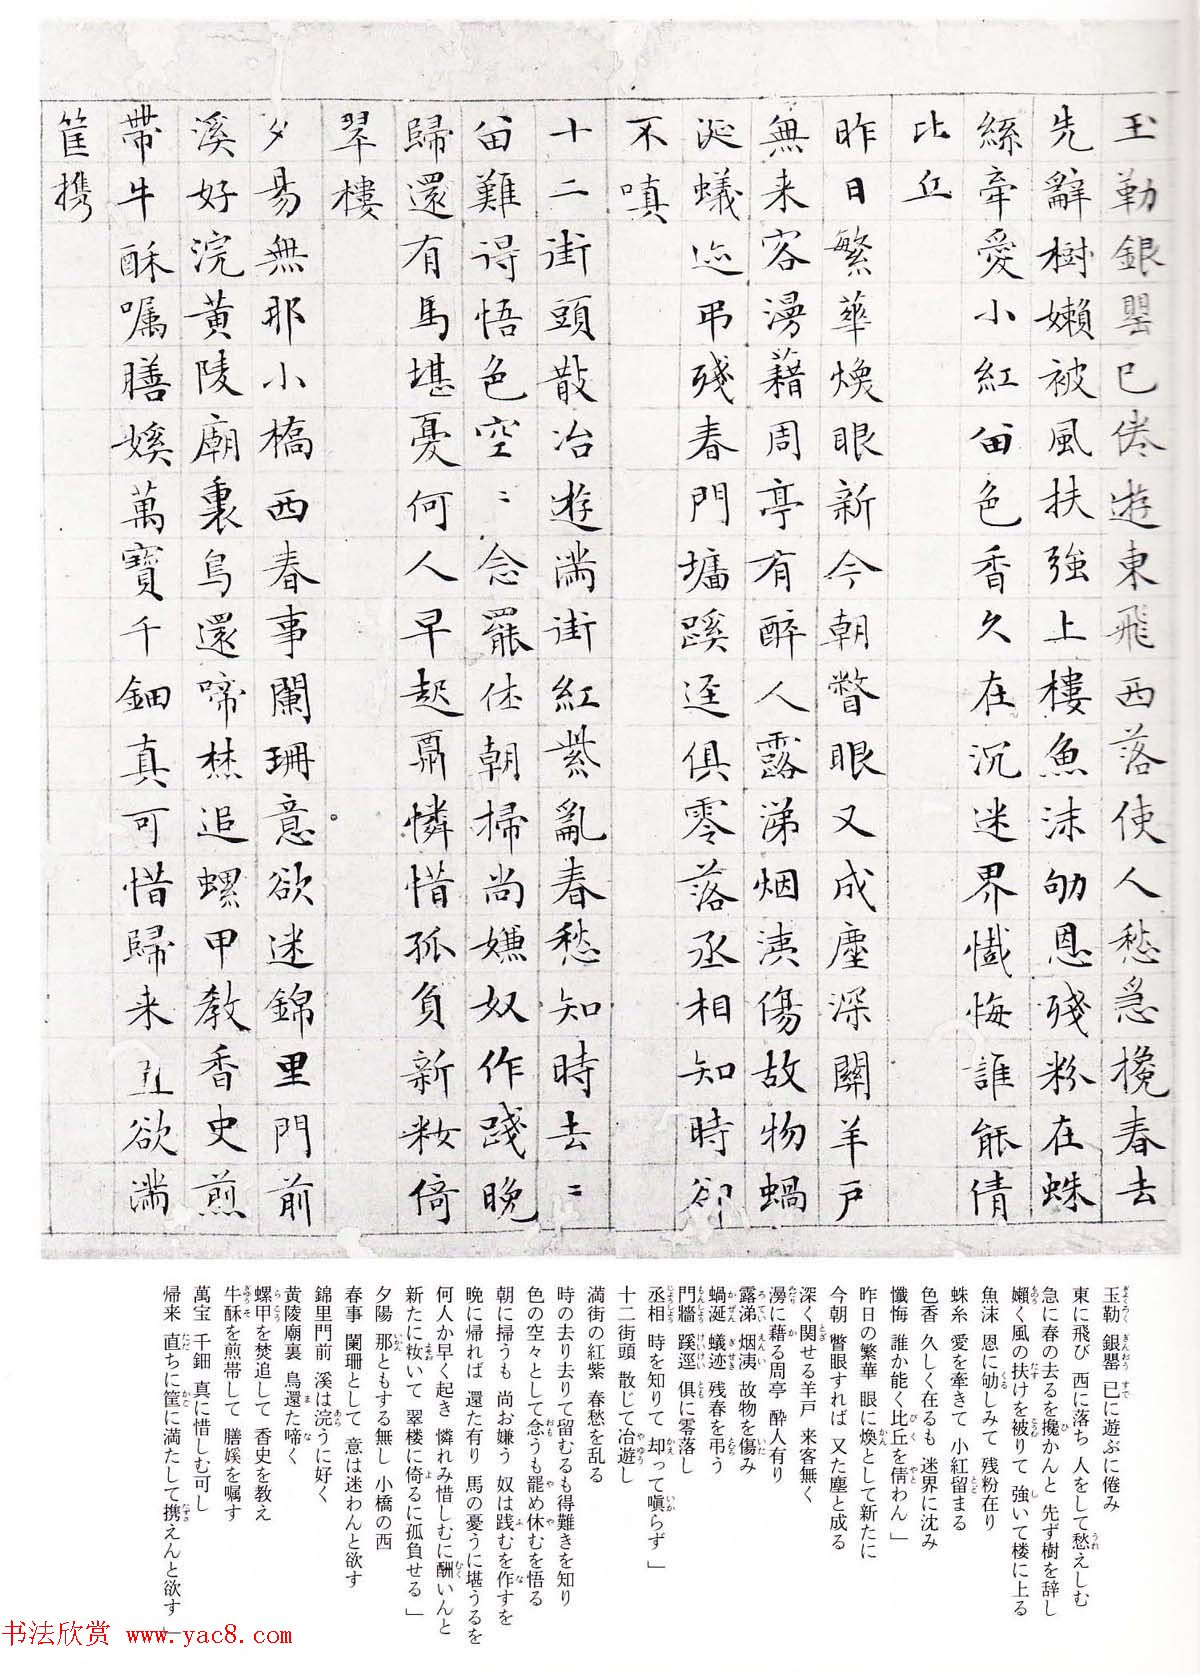 玉勒銀罌已倦遊東飛西落使人愁急攙春去
先辭樹嬾被風扶強上樓魚沫劬恩殘粉在蛛
絲牽愛小紅畄色香久在沉迷界懺悔誰能倩
比丘
昨日繁華煥眼新今朝瞥眼又成塵深關羊戶
無来客漫藉周亭有醉人露涕烟洟傷故物蝸
涎蟻迹弔殘春門墻蹊逕俱零落丞相知時卻
不嗔
十二街頭散冶遊滿街紅紫亂春愁知時去〻
畄難得悟色空〻念罷休朝掃尚嫌奴作踐晚
歸還有馬堪憂何人早起酬憐惜孤負新妝倚
翠樓
夕昜無那小橋西春事闌珊意欲迷錦里門前
溪好浣黃陵廟裏鳥還啼焚追螺甲教香史煎
帶牛酥囑膳媄萬寶千鈿真可惜歸来直欲滿
筐携
玉勒 銀罌 已に遊ぶに倦み
東に飛び 西に落ち 人をして愁えしむ
急に春の去るを攙かんと 先ず樹を辞し
嬾く風の扶けを被りて 強いて楼に上る
魚沫 恩に劬しみて 残粉在り
蛛糸 愛を牽きて 小紅留まる
色香 久しく在るも 迷界に沈み
懺悔 誰か能く比丘を倩わん」
昨日の繁華 眼に煥として新たに
今朝 瞥眼すれば 又た塵と成る
深く関せる羊戸 来客無く
漫に藉る周亭 酔人有り
露涕 烟洟 故物を傷み
蝸涎 蟻迹 残春を弔う
門牆 蹊逕 俱に零落し
丞相 時を知りて 却って嗔らず」
十二街頭 散じて冶遊し
満街の紅紫 春愁を乱る
時の去り去りて留むるも得難きを知り
色の空々として念うも罷め休むを悟る
朝に掃うも 尚お嫌う 奴は践むを作すを
晩に帰れば 還た有り 馬の憂うに堪うるを
何人か早く起き 憐れみ惜しむに酬いんと
新たに妝いて 翠楼に倚るに孤負せる」
夕陽 那ともする無し 小橋の西
春事 闌珊として 意は迷わんと欲す
錦里門前 溪は浣うに好く
黄陵廟裏 鳥還た啼く
螺甲を焚追して 香史を教え
牛酥を煎帯して 膳媄を嘱す
萬宝 千鈿 真に惜しむ可し
帰来 直ちに筐に満たして携えんと欲す」
书法欣赏 www.yac8.com